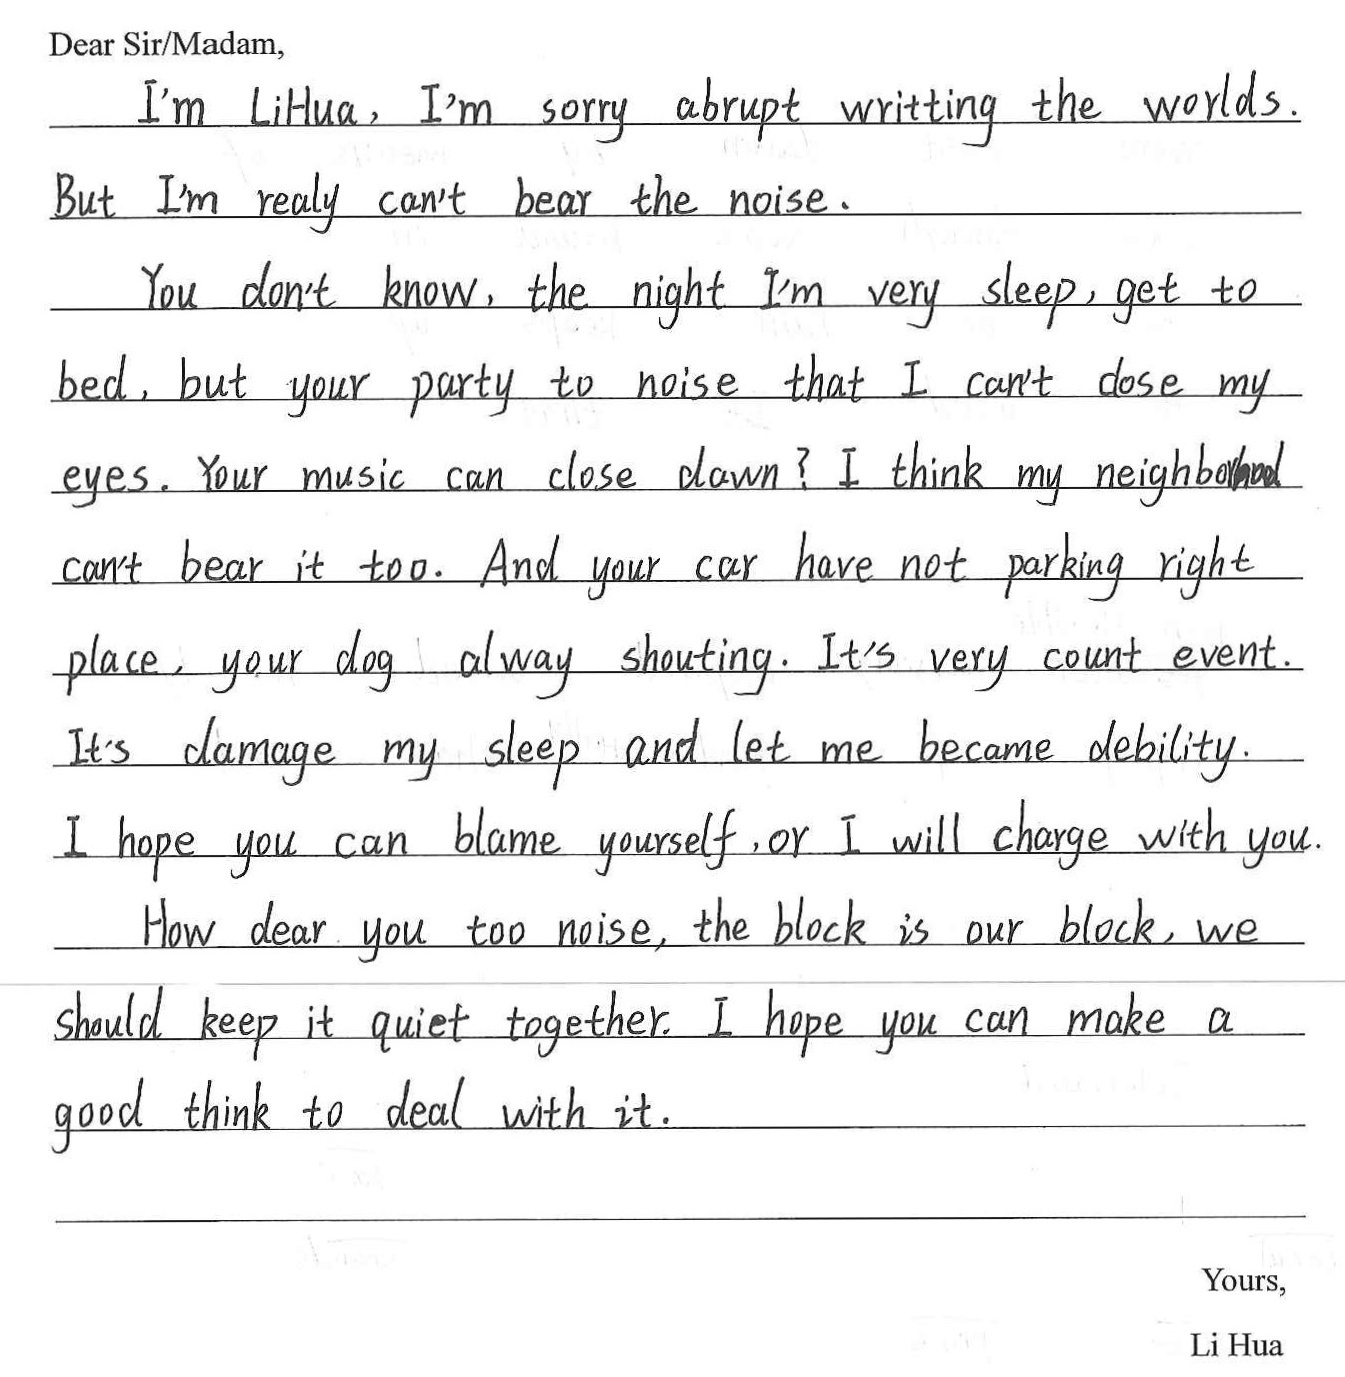 Dear Sir/Madam,
I'm LiHua, I'm sorry abrupt writting the worlds.
But I'm realy can't bear the noise.
You don't know, the night I'm very sleep, get to
bed, but your party to noise that I can't close my
eyes. Your music can close dawn? I think my neighborhood
can't bear it too. And your car have not parking right
place, your dog alway shouting. It's very count event.
It's damage my sleep and let me became debility.
I hope you can blame yourself, or I will charge with you.
How dear you too noise, the block is our block, we
should keep it quiet together. I hope you can make a
good think to deal with it.
Yours,
Li Hua